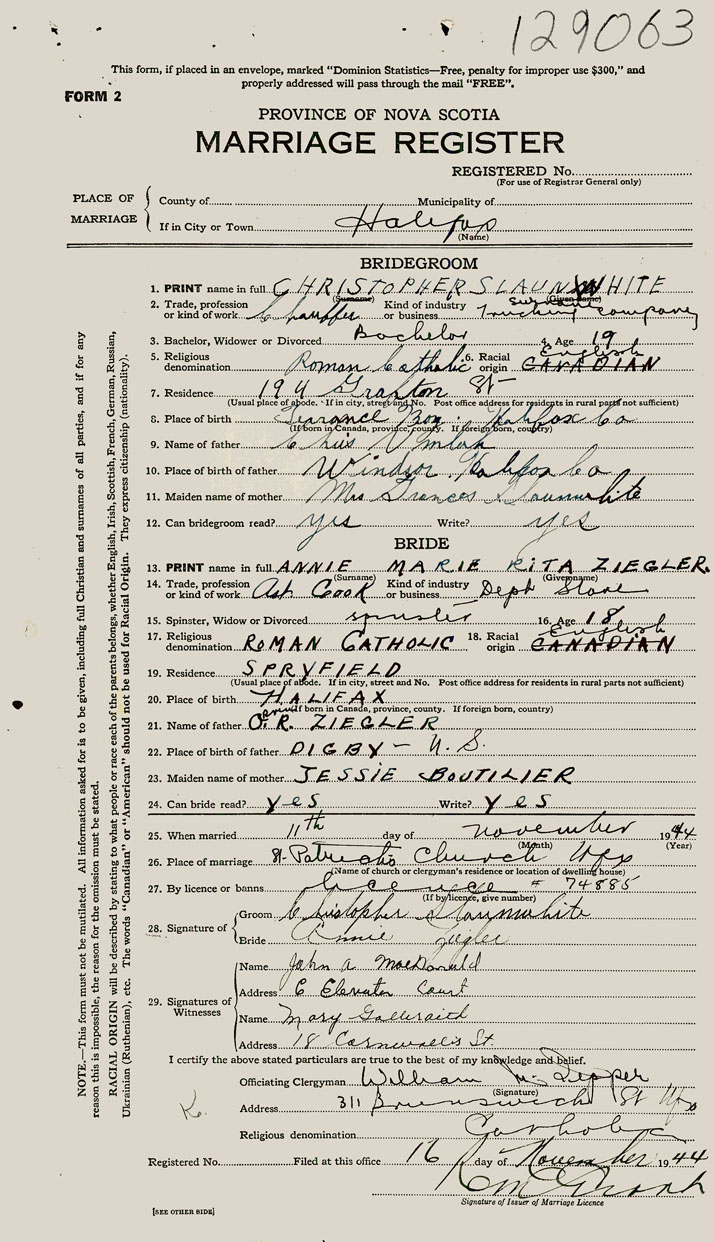 129063
This form, if placed in an envelope, marked “Dominion Statistics—Free, penalty for improper use $300,” and
properly addressed will pass through the mail “FREE”.
FORM 2
PROVINCE OF NOVA SCOTIA
MARRIAGE REGISTER
REGISTERED No.
(For use of Registrar General only)
PLACE OF MARRIAGE
County of Municipality of
If in City or Town Halifax
(Name)
BRIDEGROOM
1. PRINT name in full CHRISTOPHER SLAUNWHITE
(Surname) (Given name)
2. Trade, profession or kind of work Chauffer Kind of industry or business Trucking company
3. Bachelor, Widower or Divorced Bachelor 4. Age 19
5. Religious denomination Roman Catholic 6. Racial origin English CANADIAN
7. Residence 194 Grafton St
(Usual place of abode. If in city, street and No. Post office address for residents in rural parts not sufficient)
8. Place of birth Terance Bay Halifax Co
(If born in Canada, province, county. If foreign born, country)
9. Name of father Chris Umlah
10. Place of birth of father Windsor Halifax Co
11. Maiden name of mother Mrs Frances Slaunwhite
12. Can bridegroom read? yes Write? yes
BRIDE
13. PRINT name in full ANNIE MARIE RITA ZIEGLER.
(Surname) (Given name)
14. Trade, profession or kind of work Ast Cook Kind of industry or business Dept Store
15. Spinster, Widow or Divorced spinster 16. Age 18
17. Religious denomination ROMAN CATHOLIC 18. Racial origin English CANADIAN
19. Residence SPRYFIELD
(Usual place of abode. If in city, street and No. Post office address for residents in rural parts not sufficient)
20. Place of birth HALIFAX
(If born in Canada, province, county. If foreign born, country)
21. Name of father O.R. ZIEGLER
22. Place of birth of father DIGBY — N.S.
23. Maiden name of mother JESSIE BOUTILIER
24. Can bride read? yes Write? yes
25. When married 11th day of November 1944
(Month) (Year)
26. Place of marriage St. Patrick's Church Hfx
(Name of church or clergyman's residence or location of dwelling house)
27. By licence or banns licence # 74885
(If by licence, give number)
28. Signature of
Groom Christopher Slaunwhite
Bride Annie Ziegler
29. Signatures of Witnesses
Name John A MacDonald
Address 6 Elevator Court
Name Mary Gallaraith
Address 18 Cornwallis St.
I certify the above stated particulars are true to the best of my knowledge and belief.
Officiating Clergyman William M. Pepper
(Signature)
Address 311 Brunswick St Hfx
Religious denomination Catholic
Registered No. Filed at this office 16 day of November 1944
Signature of Issuer of Marriage Licence
[SEE OTHER SIDE]
NOTE.—This form must not be mutilated. All information asked for is to be given, including full Christian and surnames of all parties, and if for any
reason this is impossible, the reason for the omission must be stated.
RACIAL ORIGIN will be described by stating to what people or race each of the parents belongs, whether English, Irish, Scottish, French, German, Russian,
Ukrainian (Ruthenian), etc. The words “Canadian” or “American” should not be used for Racial Origin. They express citizenship (nationality).